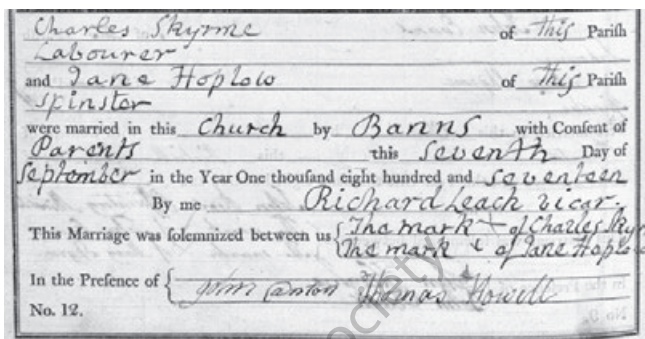 Charles Skyrme of this Parish
Labourer
and Jane Hoplow of this Parish
Spinster
were married in this Church by Banns with Consent of
Parents this Seventh Day of
September in the Year One thousand eight hundred and seventeen
By me Richard Leach vicar.
This Marriage was solemnized between us { The mark + of Charles Sky
The mark + of Jane Hoplow
In the Presence of { John Thomas Howell
No. 12.
ociety